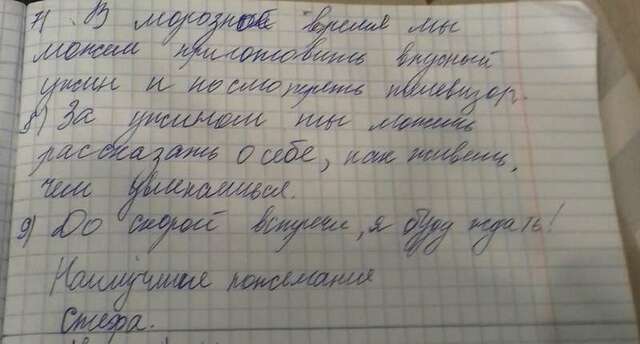 7) В морозное время мы
можем приготовить вкусный
ужин и посмотреть телевизор.
8) За ужином ты можешь
рассказать о себе, как живешь,
чем увлекаешься.
9) До скорой встречи, я буду ждать!
Наилучшие пожелания
Стефа.